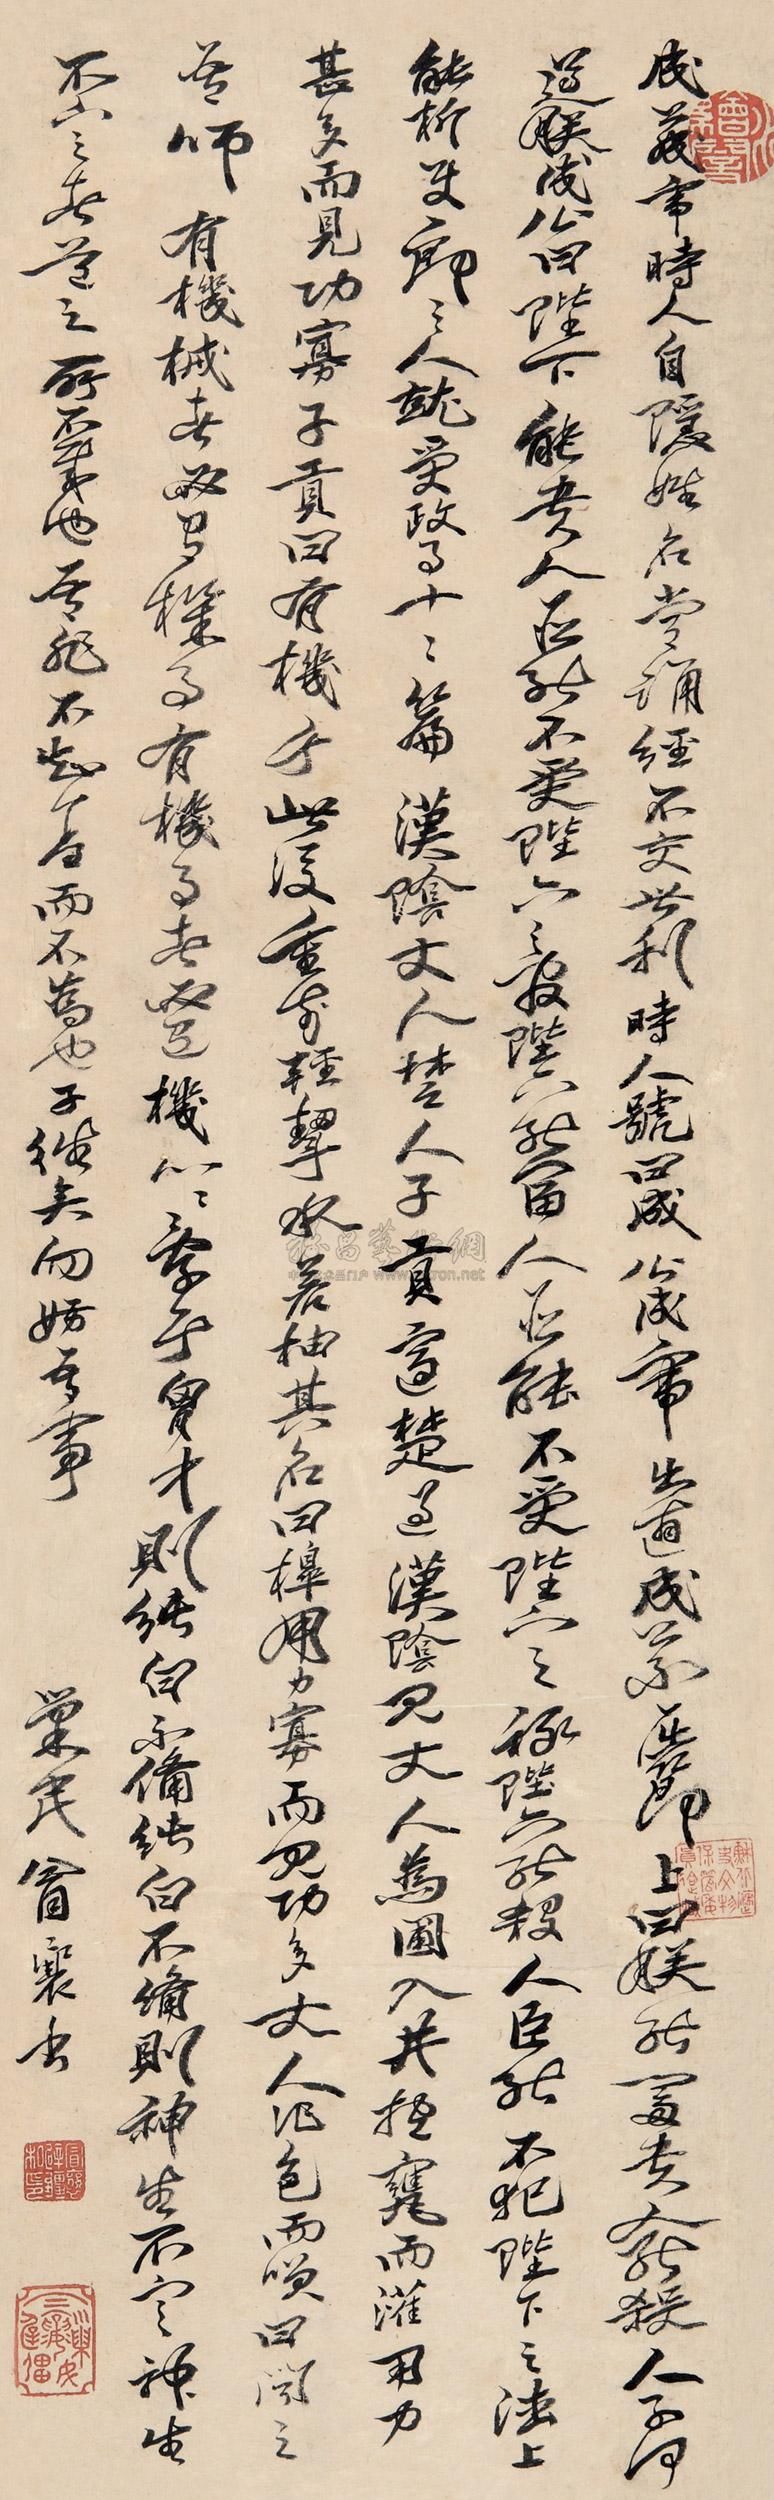 成帝時人自隱姓名常誦經不交世利時人號曰成公成帝出遊成不屈節上曰朕能富貴人能殺人子何
逆朕成公曰陛下能貴人臣能不受陛下之官陛下能富人臣能不受陛下之祿陛下能殺人臣能不犯陛下之法上
能折使郎二人就受政事十二篇漢陰丈人楚人子貢適楚過漢陰見丈人為圃入井抱甕而灌用力
甚多而見功寡子貢曰有機于此後重前輕挈水若抽其名曰槔用力寡而見功多丈人作色而笑曰聞之
吾師有機械者必有機事有機事者必有機心機心存于胸中則純白不備純白不備則神生不定神生
不定者道之所不載也吾非不知羞而不為也子往矣勿妨吾事
巢民冒襄書